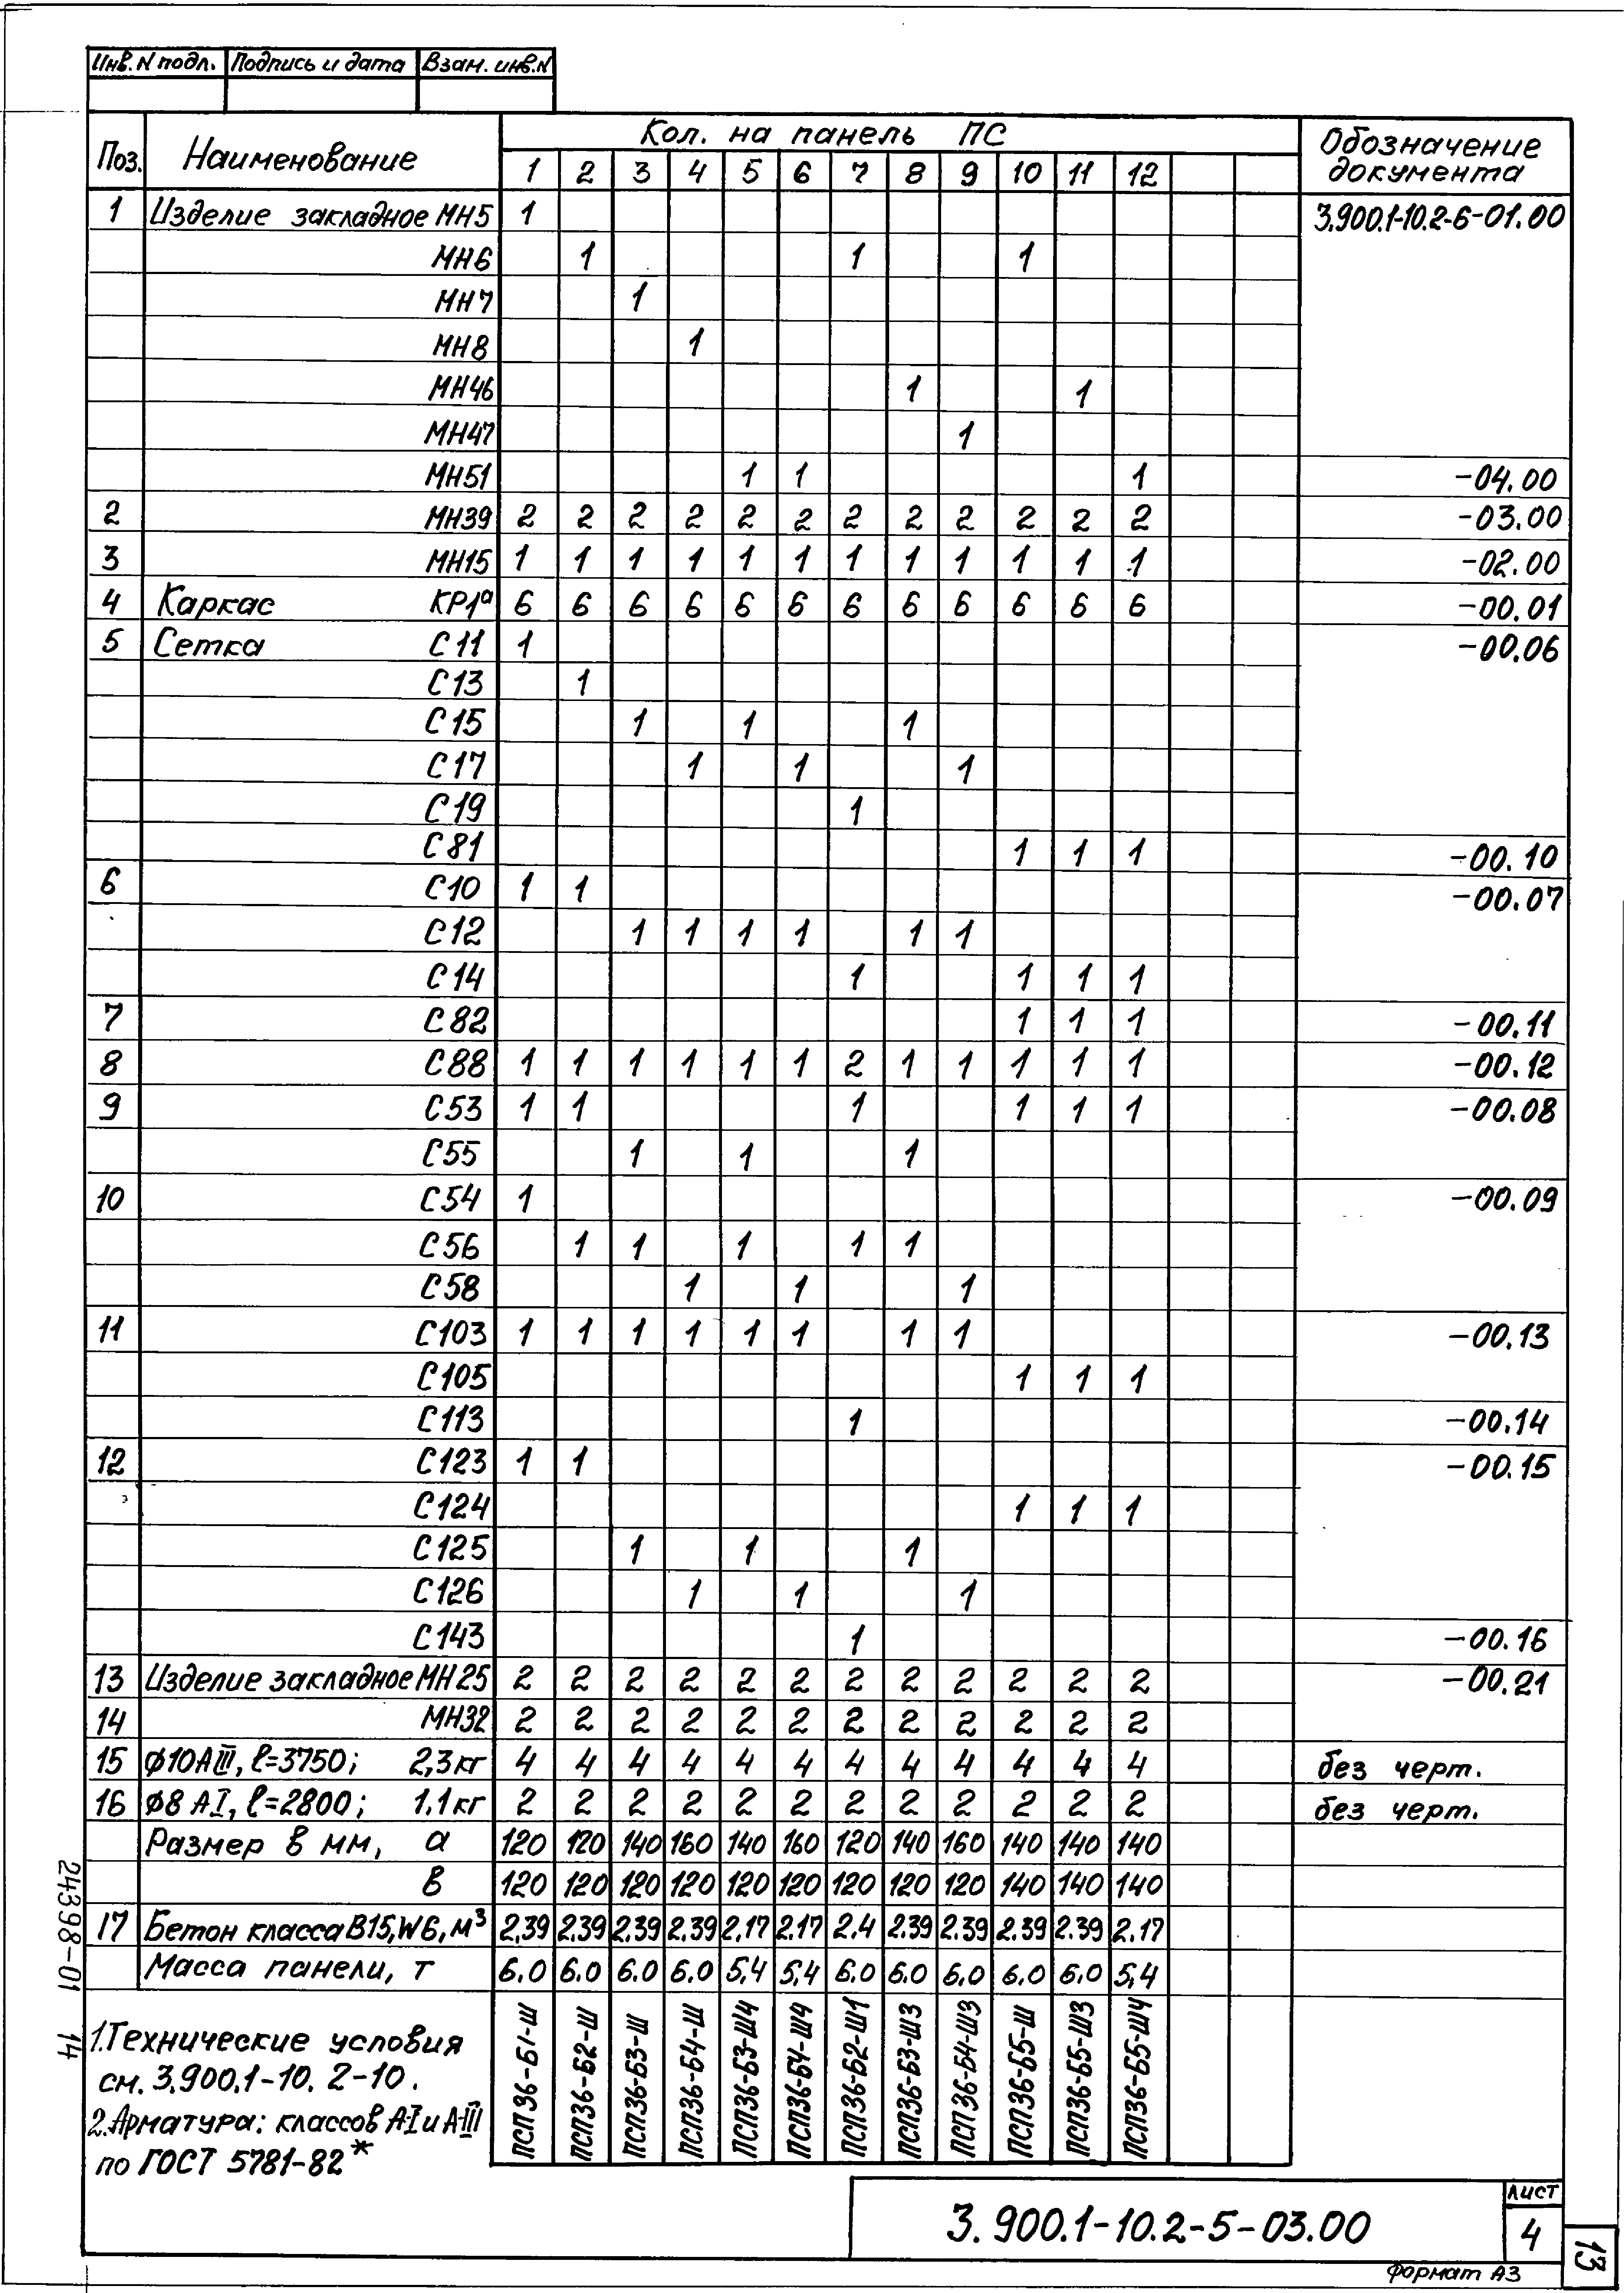 Инв. N подл. Подпись и дата Взам. инв. N
Поз. Наименование Кол. на панель ПС Обозначение документа
1 2 3 4 5 6 7 8 9 10 11 12
1 Изделие закладное МН5 1 3.900.1-10.2-6-01.00
МН6 1 1 1
МН7 1
МН8 1
МН46 1 1
МН47 1
МН51 1 1 1 -04.00
2 МН39 2 2 2 2 2 2 2 2 2 2 2 2 -03.00
3 МН15 1 1 1 1 1 1 1 1 1 1 1 1 -02.00
4 Каркас КР1а 6 6 6 6 6 6 6 6 6 6 6 6 -00.01
5 Сетка С11 1 -00.06
С13 1
С15 1 1 1
С17 1 1 1
С19 1
С81 1 1 1 -00.10
6 С10 1 1 -00.07
С12 1 1 1 1 1 1
С14 1 1 1 1
7 С82 1 1 1 -00.11
8 С88 1 1 1 1 1 1 2 1 1 1 1 1 -00.12
9 С53 1 1 1 1 1 1 -00.08
С55 1 1 1
10 С54 1 -00.09
С56 1 1 1 1 1
С58 1 1 1
11 С103 1 1 1 1 1 1 1 1 -00.13
С105 1 1 1
С113 1 -00.14
12 С123 1 1 -00.15
С124 1 1 1
С125 1 1 1
С126 1 1 1
С143 1 -00.16
13 Изделие закладное МН25 2 2 2 2 2 2 2 2 2 2 2 2 -00.21
14 МН32 2 2 2 2 2 2 2 2 2 2 2 2
15 ф10АIII, ℓ=3750; 2,3кг 4 4 4 4 4 4 4 4 4 4 4 4 без черт.
16 ф8 АI, ℓ=2800; 1.1кг 2 2 2 2 2 2 2 2 2 2 2 2 без черт.
Размер в мм, а 120 120 140 160 140 160 120 140 160 140 140 140
в 120 120 120 120 120 120 120 120 120 140 140 140
17 Бетон класса В15,W6,м³ 2,39 2.39 2.39 2.39 2,17 2.17 2.4 2.39 2.39 2.39 2.39 2.17
Масса панели, т 6.0 6.0 6.0 6.0 5,4 5,4 6.0 6.0 6.0 6.0 6.0 5,4
ПСП36-Б1-Ш
ПСП36-Б2-Ш
ПСП36-Б3-Ш
ПСП36-Б4-Ш
ПСП36-Б3-Ш4
ПСП36-Б4-Ш4
ПСП36-Б2-Ш1
ПСП36-Б3-Ш3
ПСП36-Б4-Ш3
ПСП36-Б5-Ш
ПСП36-Б5-Ш3
ПСП36-Б5-Ш4
1.Технические условия
см. 3.900.1-10. 2-10.
2.Арматура: классов А-I и А-III
по ГОСТ 5781-82*
24398-01 14
3.900.1-10.2-5-03.00
лист
4
13
Формат А3